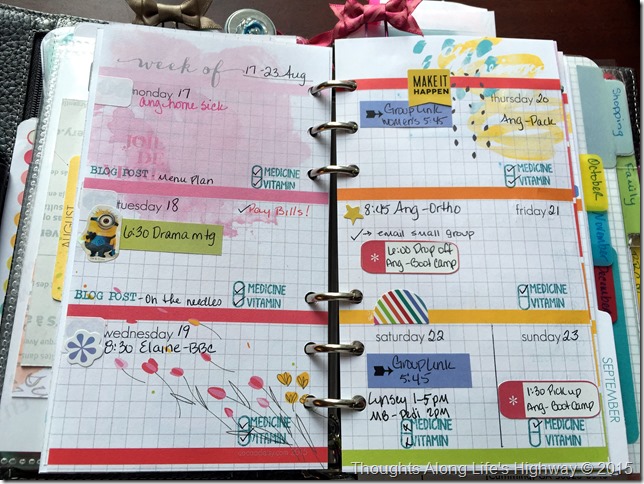 week of 17-23 Aug
monday 17
Ang home sick
BLOG POST: Menu Plan
MEDICINE
VITAMIN
tuesday 18
Pay Bills!
6:30 Drama mtg
BLOG POST- On the needles
MEDICINE
VITAMIN
wednesday 19
8:30 Elaine-BBC
MEDICINE
VITAMIN
MAKE IT
HAPPEN
thursday 20
Group Link
Women's 5:45
Ang-Pack
MEDICINE
VITAMIN
friday 21
8:45 Ang-Ortho
email small group
6:00 Drop off
Ang-Boot Camp
MEDICINE
VITAMIN
saturday 22
Group Link
5:45
Lynsey 1-5 pm
MB-Pedi 2PM
MEDICINE
VITAMIN
sunday 23
1:30 Pick up
Ang-Boot Camp
MEDICINE
VITAMIN
AUGUST
Shopping
Family
October
November
December
SEPTEMBER
Thoughts Along Life's Highway © 2015